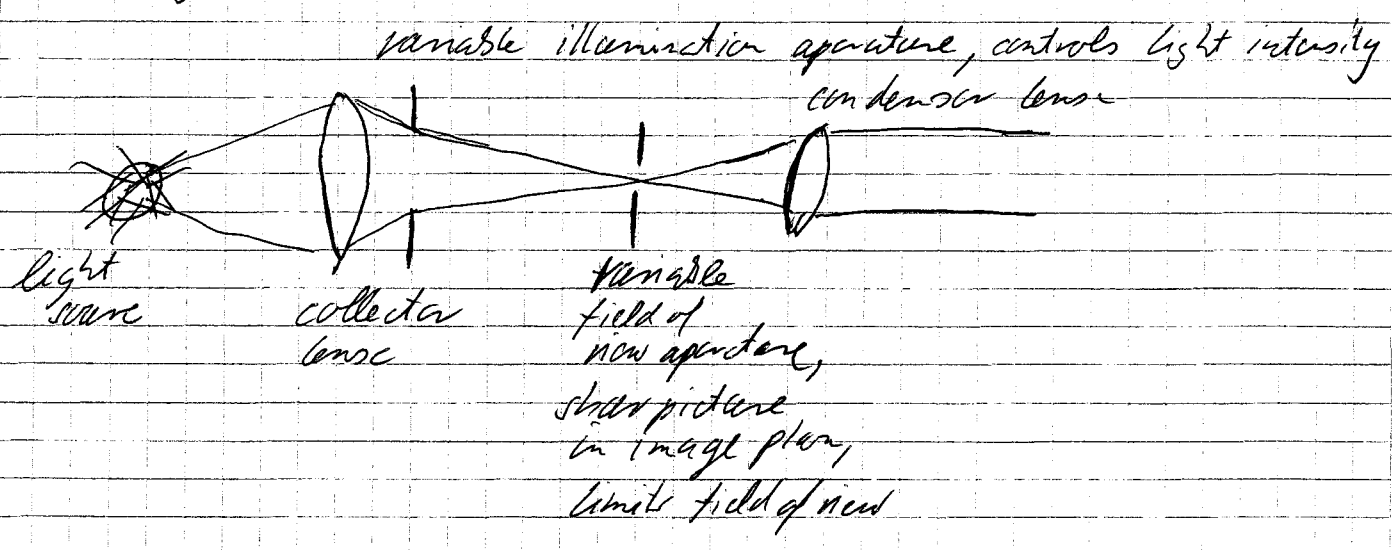 variable illumination aparature, controls light intensity
condensor lense
light
source
collector
lense
variable
field of
view aparature,
sharp picture
in image plan,
limits field of view